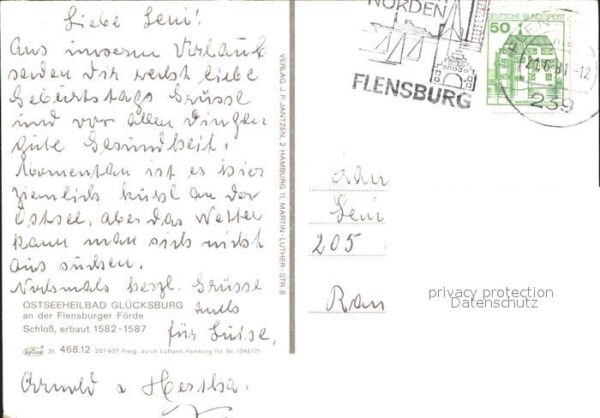 Liebe Leni!
Aus unserem Urlaub
senden Dir recht liebe
Geburtstags Grüsse
und vor allen Dingen
gute Gesundheit.
Momentan ist es hier
ziemlich kühl an der
Ostsee, aber das Wetter
kann man sich nicht
aus suchen.
Nochmals herzl. Grüsse
auch
für Luise,
Arnold u Hertha.
OSTSEEHEILBAD GLÜCKSBURG
an der Flensburger Förde
Schloß, erbaut 1582-1587
31 468.12 257407 Freig. durch Luftamt Hamburg Nr. 1246/71
VERLAG J. P. JANTZEN, 2 HAMBURG 11, MARTIN-LUTHER-STR. 8
NORDEN
FLENSBURG
DEUTSCHE BUNDESPOST
50
-12
239
Frau
Leni
205
Ran
privacy protection
Datenschutz